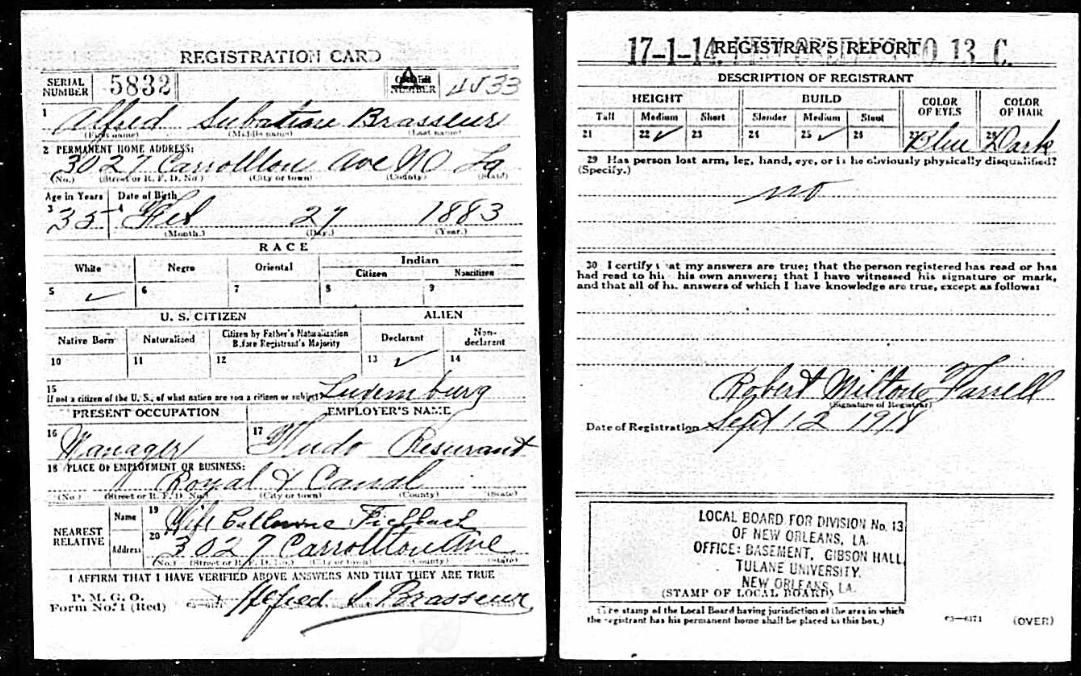 REGISTRATION CARD
SERIAL NUMBER 5832
ORDER NUMBER A 4833
1 Alfred Subatione Brasseur
(First name) (Middle name) (Last name)
2 PERMANENT HOME ADDRESS:
3027 Carrollton Ave N O La
(No.) (Street or R. F. D. No.) (City or town) (County) (State)
Age in Years Date of Birth
3 35 4 Feb 27 1883
(Month.) (Day.) (Year.)
RACE
White Negro Oriental Indian
Citizen Noncitizen
5 ✓ 6 7 8 9
U. S. CITIZEN ALIEN
Native Born Naturalized Citizen by Father's Naturalization Before Registrant's Majority Declarant Non-declarant
10 11 12 13 ✓ 14
15
If not a citizen of the U. S., of what nation are you a citizen or subject? Luxemburg
PRESENT OCCUPATION EMPLOYER'S NAME
16 Manager 17 Resurant
18 PLACE OF EMPLOYMENT OR BUSINESS:
Royal & Canal
(No.) (Street or R. F. D. No.) (City or town) (County) (State)
NEAREST RELATIVE
Name 19 Wife Catherine
Address 20 3027 Carrollton Ave
(No.) (Street or R. F. D. No.) (City or town) (County) (State)
I AFFIRM THAT I HAVE VERIFIED ABOVE ANSWERS AND THAT THEY ARE TRUE
P. M. G. O.
Form No. 1 (Red) Alfred S Brasseur
17-1-14. REGISTRAR'S REPORT NO 13 C.
DESCRIPTION OF REGISTRANT
HEIGHT BUILD COLOR OF EYES COLOR OF HAIR
Tall Medium Short Slender Medium Stout
21 22 ✓ 23 24 25 ✓ 26 27 Blue 28 Dark
29 Has person lost arm, leg, hand, eye, or is he obviously physically disqualified?
(Specify.)
no
30 I certify that my answers are true; that the person registered has read or has
had read to him his own answers; that I have witnessed his signature or mark,
and that all of his answers of which I have knowledge are true, except as follows:
Robert Milton Farrell
(Signature of Registrar)
Date of Registration Sept 12 1918
LOCAL BOARD FOR DIVISION No. 13
OF NEW ORLEANS, LA.
OFFICE: BASEMENT, GIBSON HALL,
TULANE UNIVERSITY,
NEW ORLEANS, LA.
(STAMP OF LOCAL BOARD)
(The stamp of the Local Board having jurisdiction of the area in which
the registrant has his permanent home shall be placed in this box.)
03—6171 (OVER)